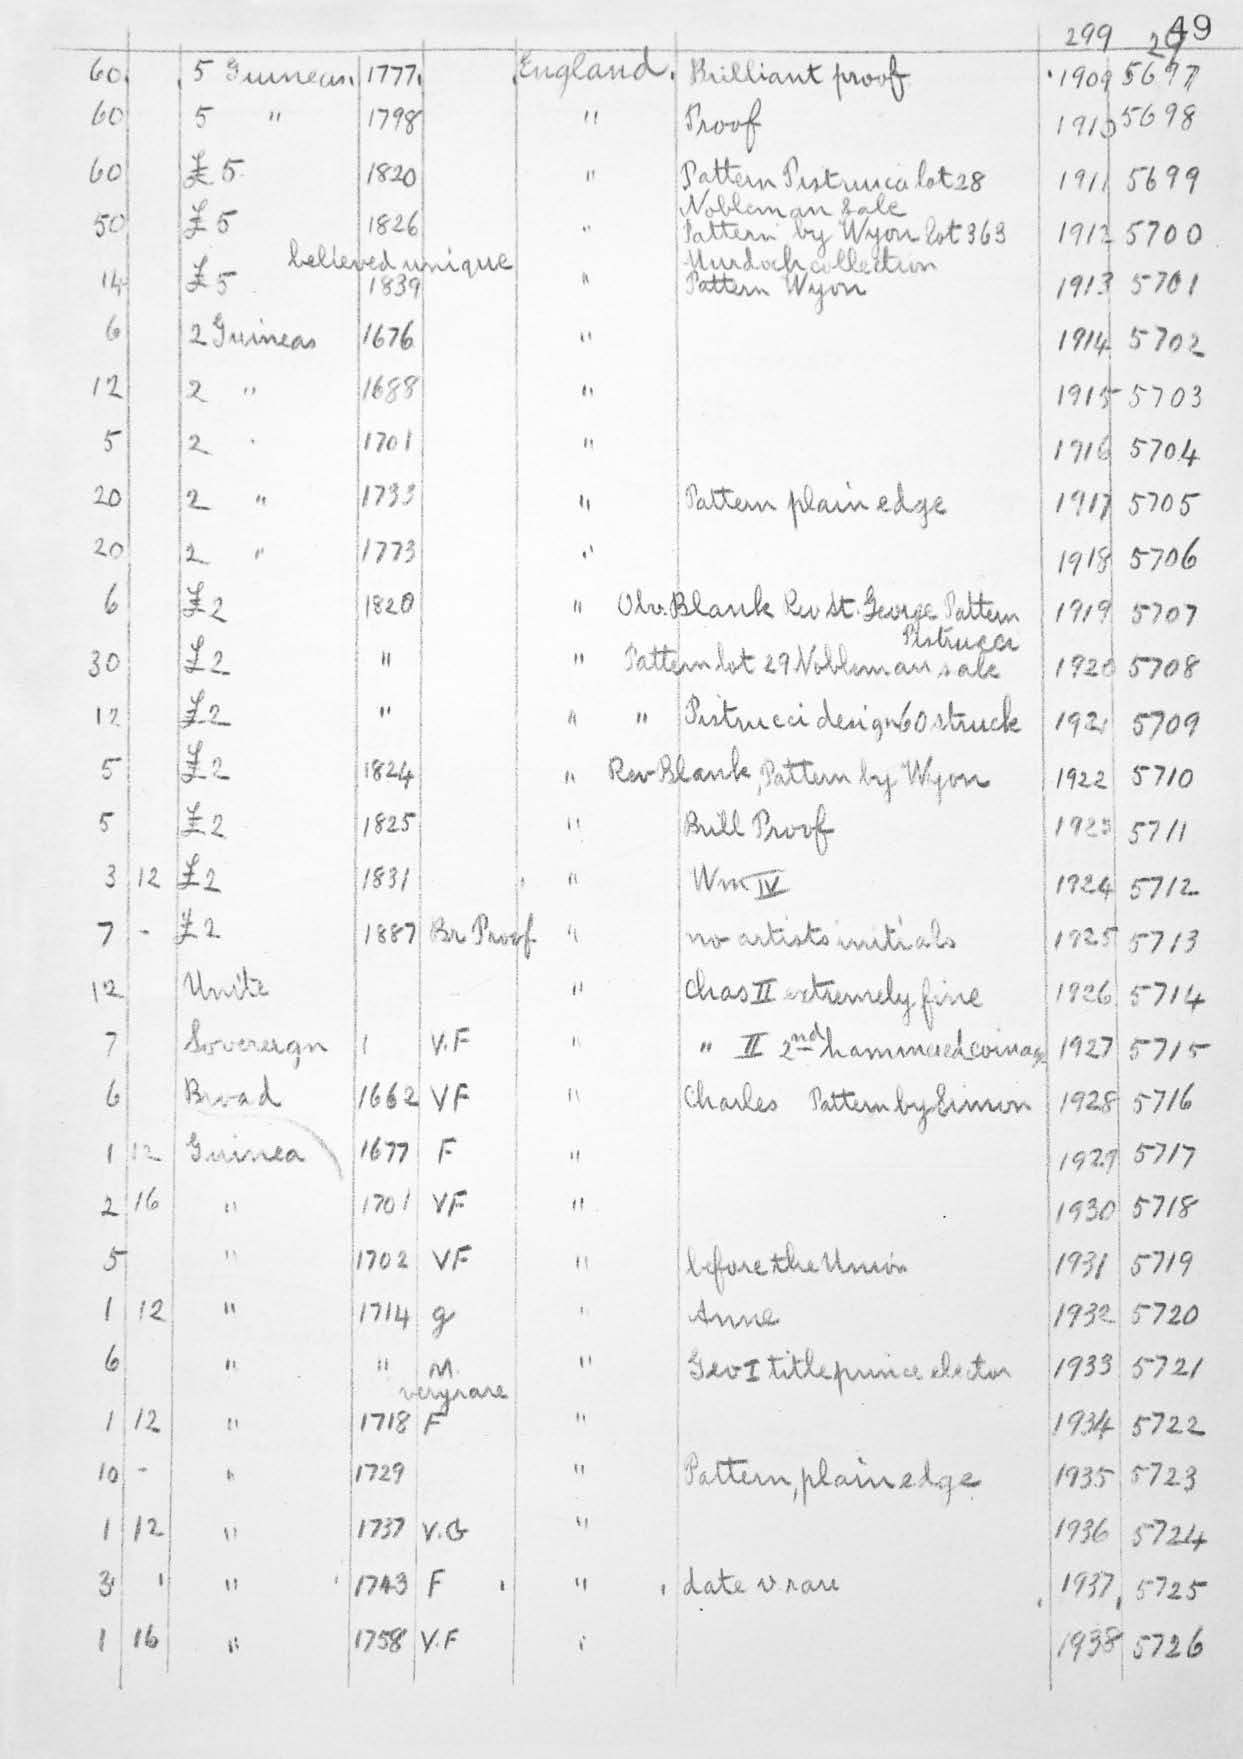 299 29 49
60 5 Guineas 1777 England Brilliant proof 1909 5697
60 5 " 1798 " Proof 1910 5698
60 £5 1820 " Pattern Pistrucci lot 28 1911 5699
Nobleman sale
50 £5 1826 " Pattern by Wyon lot 363 1912 5700
believed unique Murdoch collection
14 £5 1839 " Pattern Wyon 1913 5701
6 2 Guineas 1676 " 1914 5702
12 2 " 1688 " 1915 5703
5 2 " 1701 " 1916 5704
20 2 " 1733 " Pattern plain edge 1917 5705
20 2 " 1773 " 1918 5706
6 £2 1820 " Obv. Blank Rev St. George Pattern 1919 5707
Pistrucci
30 £2 " " Pattern lot 29 Nobleman sale 1920 5708
12 £2 " " " Pistrucci design 60 struck 1921 5709
5 £2 1824 " Rev Blank, Pattern by Wyon 1922 5710
5 £2 1825 " Brill Proof 1923 5711
3 12 £2 1831 " Wm IV 1924 5712
7 - £2 1887 Br Proof " no artists initials 1925 5713
12 Unite " Chas II extremely fine 1926 5714
7 Sovereign 1 V.F " " II 2nd hammered coinage 1927 5715
6 Broad 1662 VF " Charles Pattern by Simon 1928 5716
1 12 Guinea 1677 F " 1929 5717
2 16 " 1701 VF " 1930 5718
5 " 1702 VF " before the Union 1931 5719
1 12 " 1714 g " Anne 1932 5720
6 " " M. " Geo I title prince elector 1933 5721
very rare
1 12 " 1718 F " 1934 5722
10 - " 1729 " Pattern, plain edge 1935 5723
1 12 " 1737 V.G " 1936 5724
3 " " 1743 F " date v rare 1937 5725
1 16 " 1758 V.F " 1938 5726